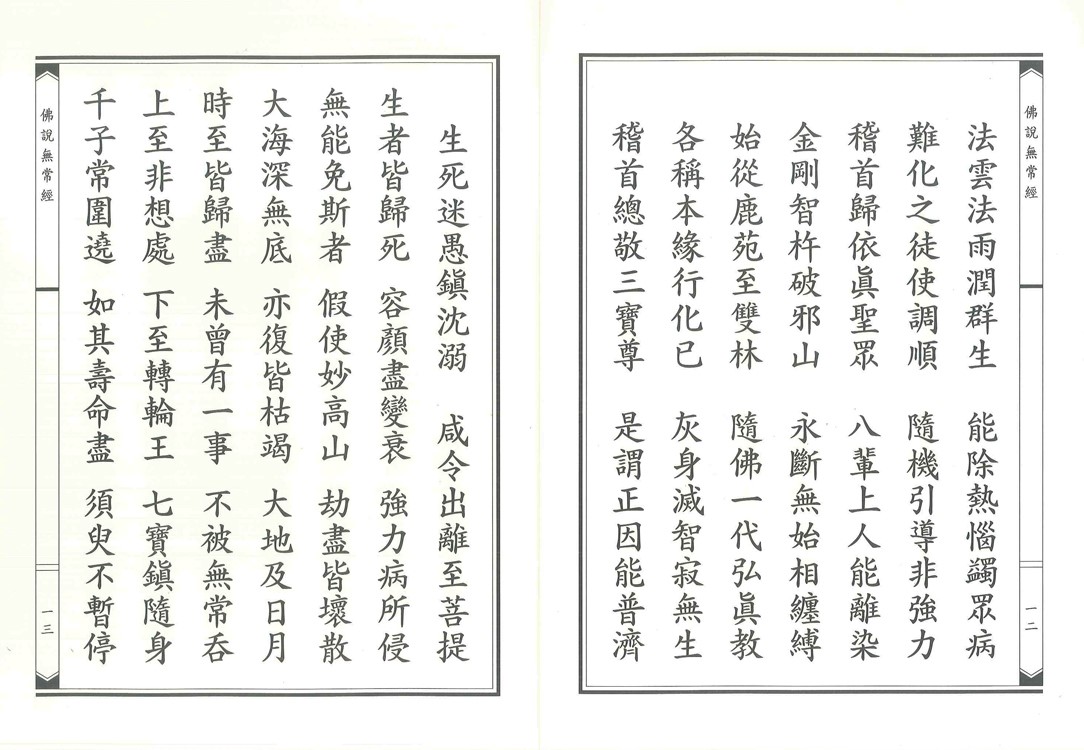 佛說無常經
一二
法雲法雨潤群生　能除熱惱蠲眾病
難化之徒使調順　隨機引導非強力
稽首歸依眞聖眾　八輩上人能離染
金剛智杵破邪山　永斷無始相纏縛
始從鹿苑至雙林　隨佛一代弘眞教
各稱本緣行化已　灰身滅智寂無生
稽首總敬三寶尊　是謂正因能普濟
生死迷愚鎮沈溺　咸令出離至菩提
生者皆歸死　容顏盡變衰　強力病所侵
無能免斯者　假使妙高山　劫盡皆壞散
大海深無底　亦復皆枯竭　大地及日月
時至皆歸盡　未曾有一事　不被無常吞
上至非想處　下至轉輪王　七寶鎮隨身
千子常圍遶　如其壽命盡　須臾不暫停
佛說無常經
一三